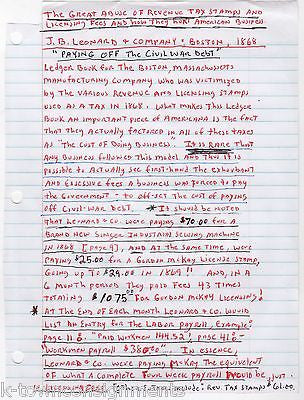 The Great Abuse of Revenue Tax Stamps and
Licensing Fees and How They Hurt American Business
J.B. Leonard & Company • Boston, 1868
"Paying Off The Civil War Debt"
Ledger Book for the Boston, Massachusetts
Manufacturing Company who was victimized
by the various Revenue and Licensing Stamps
used as a tax in 1868. What makes this Ledger
Book an important piece of Americana is the fact
that they actually factored in all of these taxes
as "The Cost of Doing Business". It is rare that
any business followed this model and thus it is
possible to actually see first-hand the exhorbant
and excessive fees a business was forced to pay
the Government - to offset the cost of paying
off Civil War Debt. * It should be noted
that Leonard & Co. were paying $70.00 for a
Brand New Singer Industrial Sewing Machine
in 1868 [page 9], and at the same time, were
paying $25.00 for a Gordon McKay License Stamp,
going up to $29.00 in 1869!! And, in a
6 month period they paid Fees 43 times
totaling $1075.00 for Gordon McKay Licensing!
* At the end of each month Leonard & Co. would
list an entry for the Labor Payroll, Example:
page 11: "Paid Workmen 144.52", page 41:
"Workmen Payroll $380.90" In essence,
Leonard & Co. were paying McKay the equivalent
of what a complete Four week payroll would be just
Licensing Fees Rev. Tax Stamps $61.00
k-townconsignments